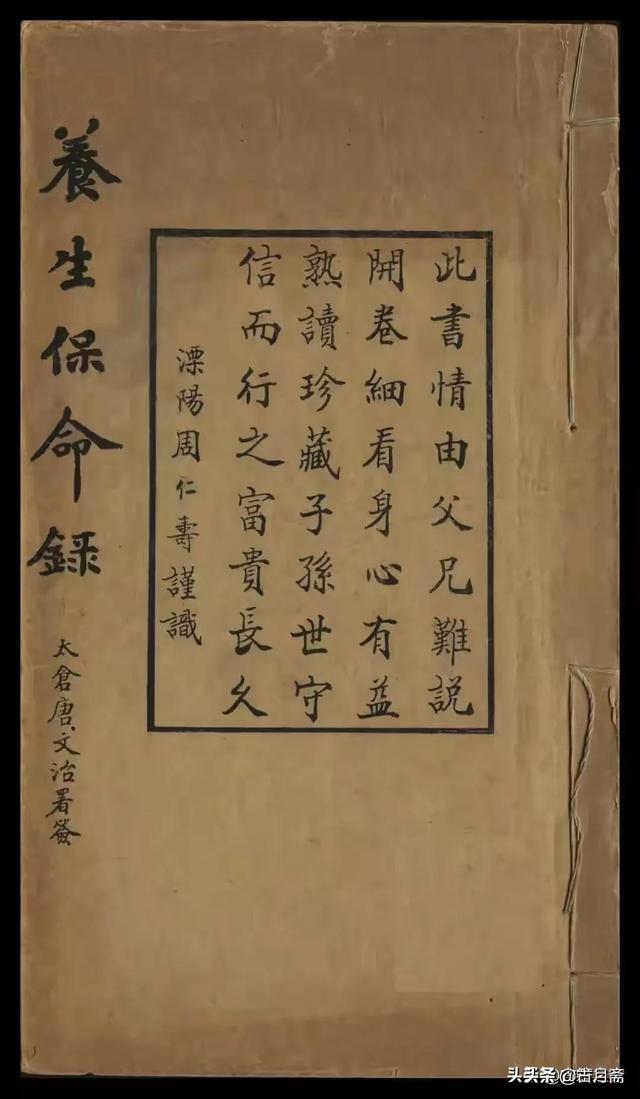 養生保命錄
太倉唐文治署簽
此書情由父兄難說
開卷細看身心有益
熟讀珍藏子孫世守
信而行之富貴長久
溧陽周仁壽謹識
头条 @箬月斋